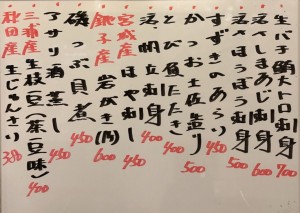 生バチ鮪トロ刺身 700
活〆しまあじ刺身 600
活〆すずき刺身 500
すずきのあらい 500
かつお土佐造り 450
とび魚たたき 500
活帆立刺身 400
宮城産 ほや刺し 400
銚子産 岩がき(内) 600
磯つぶ貝煮 450
アサリ酒蒸し 450
三浦産 生枝豆(茶豆味) 400
秋田産 生じゅんさい 350